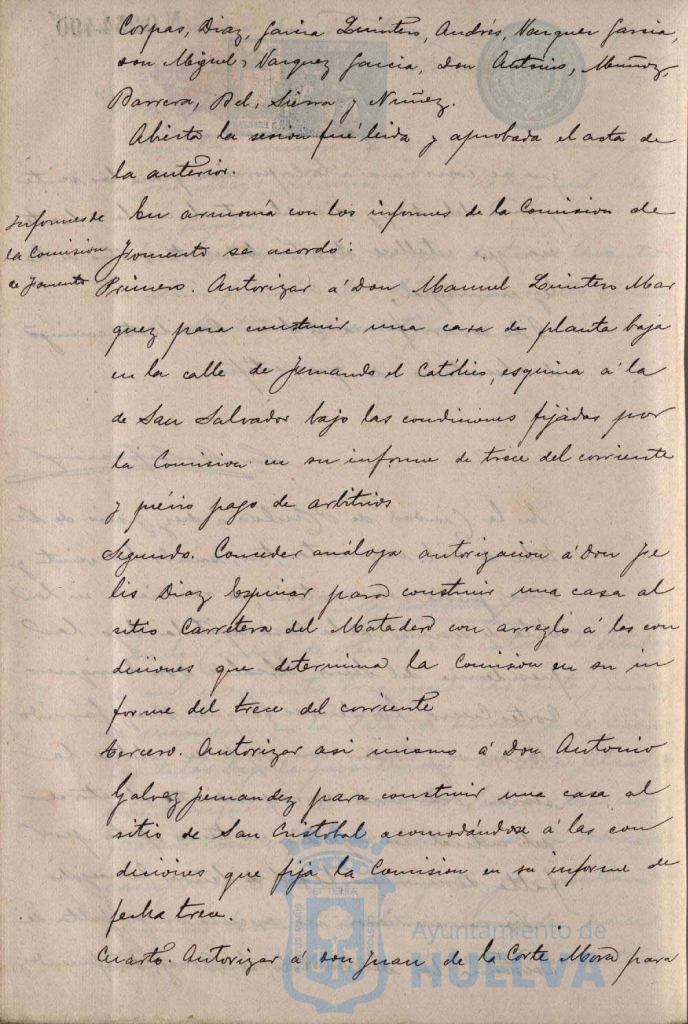 Corpas, Diaz, Garcia Quintero, Andrés, Vazquez Garcia,
Don Miguel, Vazquez Garcia, Don Antonio, Muñoz,
Barrera, Bel, Sierra y Nuñez.
Abierta la sesion fué leida y aprobada el acta de
la anterior.
Informes de
la Comision
de Fomento
En armonía con los informes de la Comision de
Fomento se acordó:
Primero. Autorizar á Don Manuel Quintero Mar
quez para construir una casa de planta baja
en la calle de Fernando el Católico, esquina á la
de San Salvador bajo las condiciones fijadas por
la Comision en su informe de trece del corriente
y prévio pago de arbitrios
Segundo. Conceder análoga autorizacion á Don Fe
lis Diaz Espinar para construir una casa al
sitio Carretera del Matadero con arreglo á las con
diciones que determina la Comision en su in
forme del trece del corriente
tercero. Autorizar asi mismo á Don Antonio
Galvez Fernandez para construir una casa al
sitio de San Cristobal acomodándose á las con
diciones que fija la Comision en su informe de
fecha trece.
Cuarto. Autorizar á Don Juan de la Corte Mora para
Ayuntamiento de
HUELVA